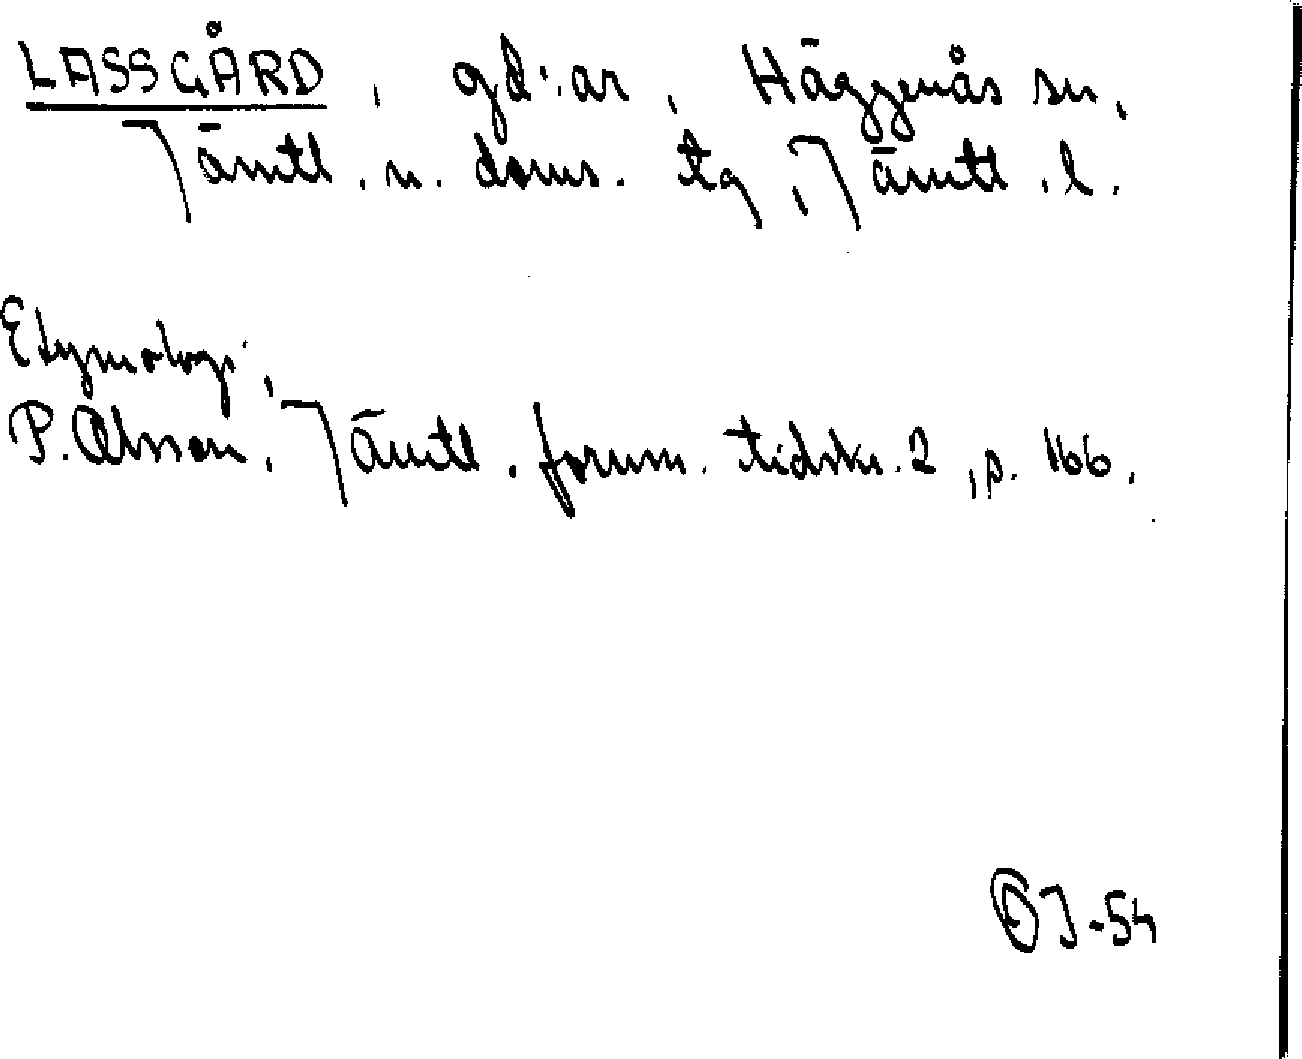 LASSGÅRD, gd:ar, Häggenås sn,
Jämtl. n. doms. tg, Jämtl. l.
Etymologi,
P. Olsson, Jämtl. fornm. tidskr. 2, p. 166.
J-54